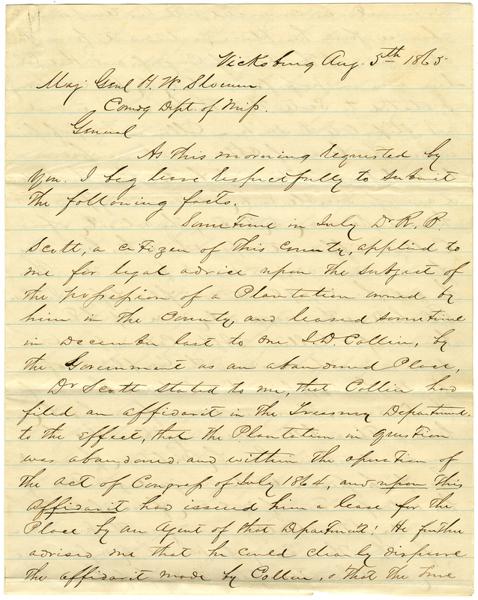 Vicksburg Aug. 5th 1865
Maj Genl H. W. Slocum
Comdg Dept of Miss.
General
As this morning requested by
you. I beg leave respectfully to submit
the following facts.
Sometime in July Dr R. B.
Scott, a citizen of this county, applied to
me for legal advice upon the subject of
the possession of a Plantation owned by
him in the county, and leased sometime
in December last to one J. D. Collin, by
the Government as an abandoned Place,
Dr Scott stated to me, that Collin had
filed an affidavit in the Treasury Department
to the effect, that the Plantation in question
was abandoned and within the operation of
the act of Congress of July 1864, and upon this
affidavit had issued him a lease for the
Place by an Agent of that Department! He further
advised me that he could clearly disprove
the affidavit made by Collin, & that the true